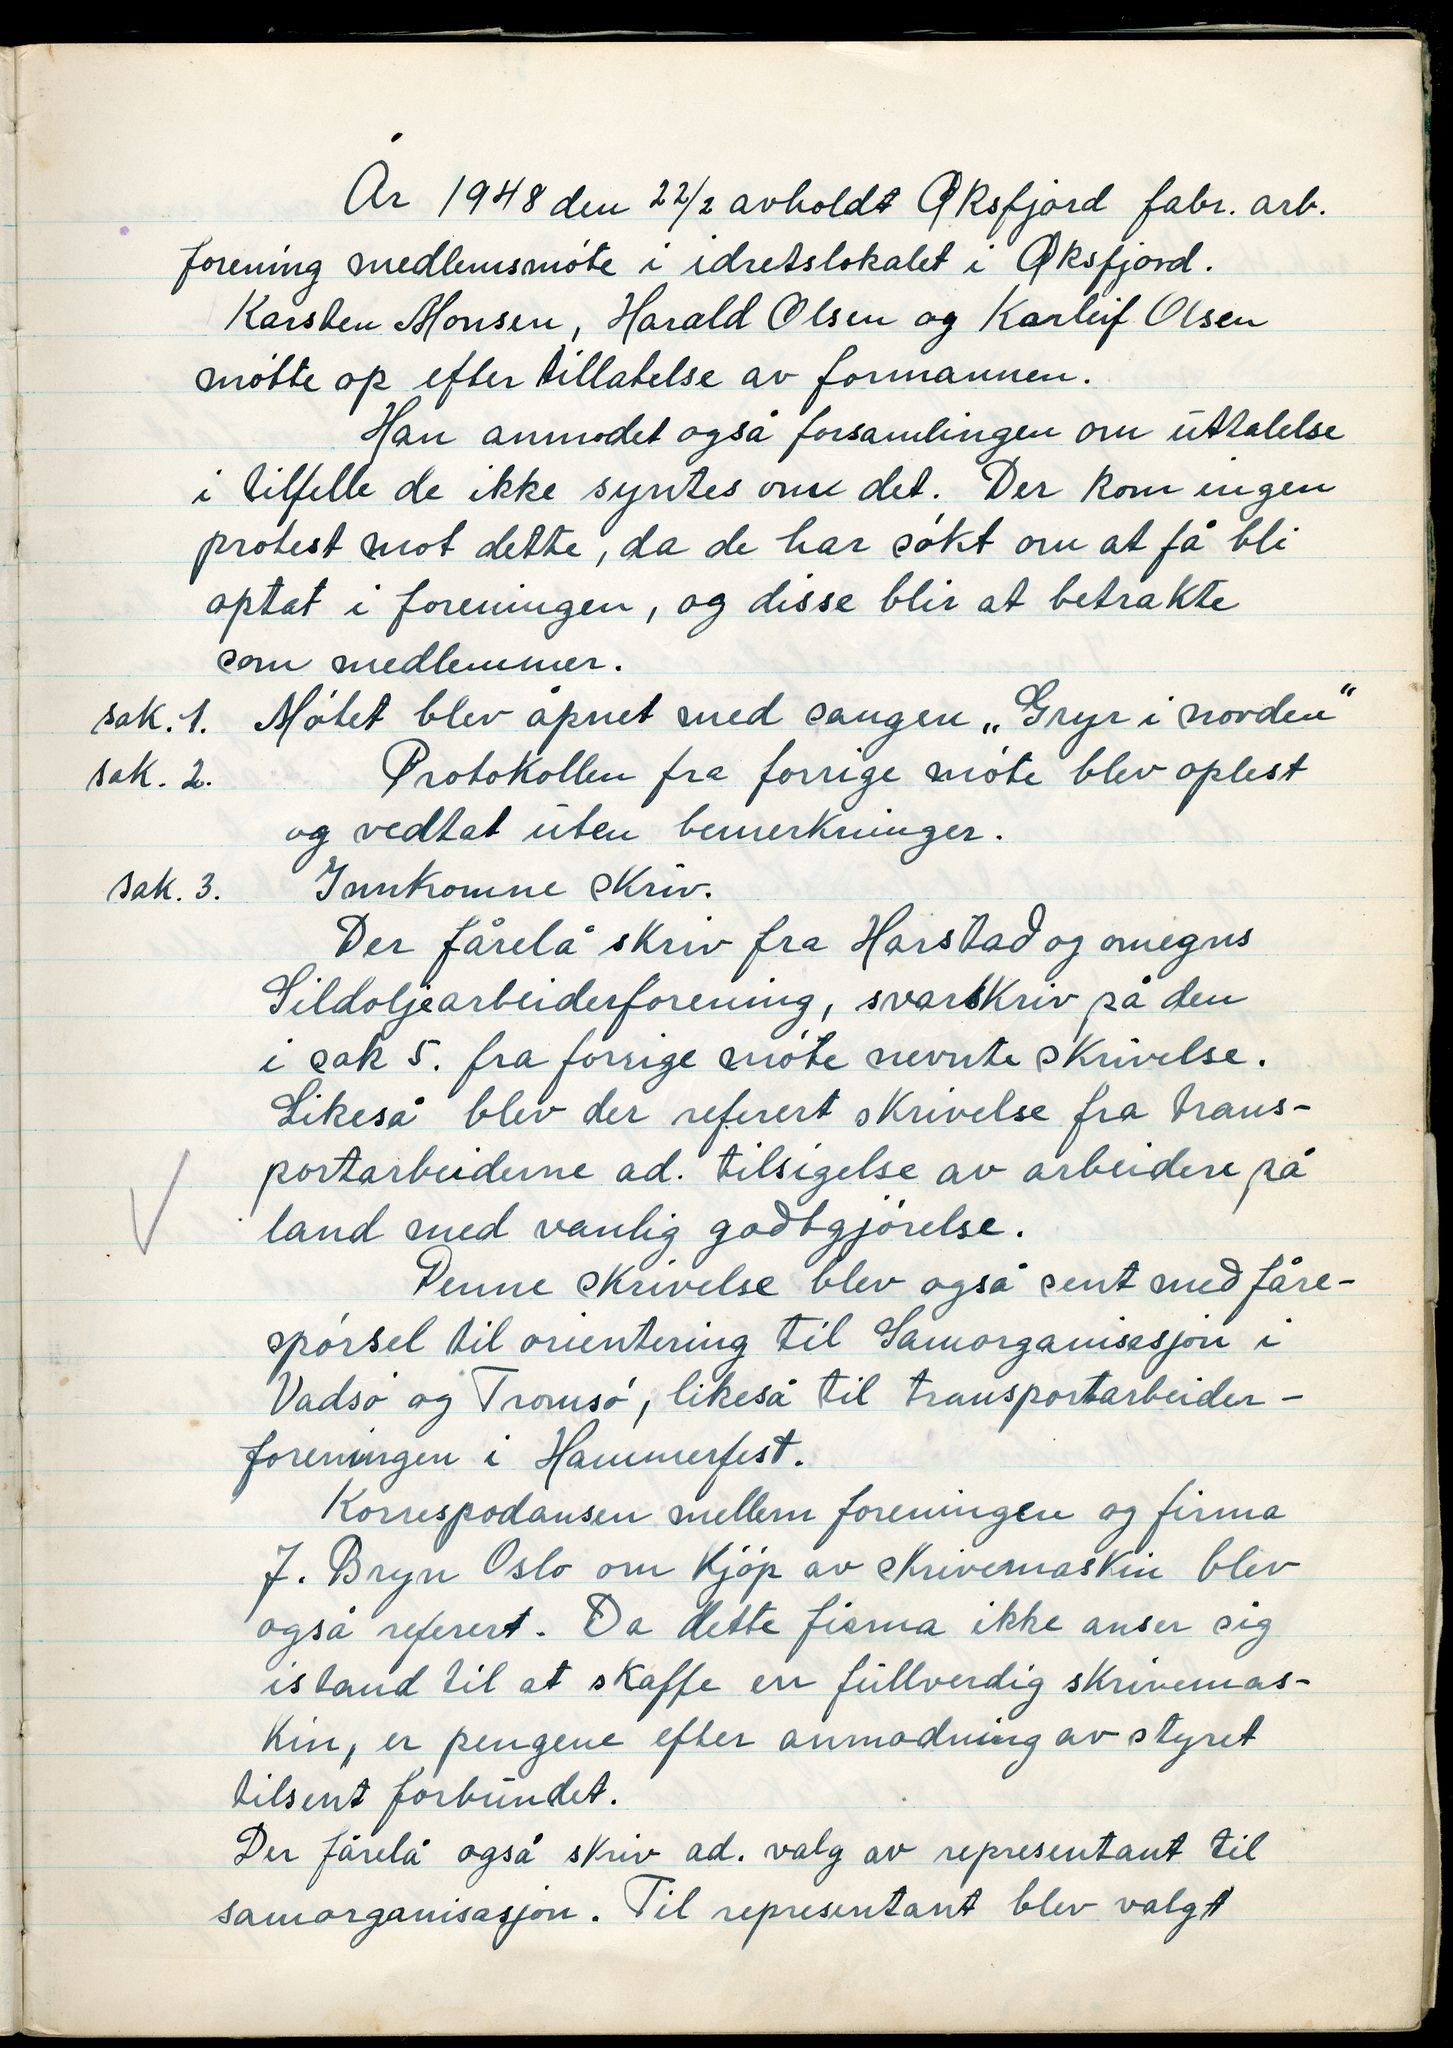 År 1948 den 22/2 avholdt Øksfjord fabr. arb.
forening medlemsmøte i idretslokalet i Øksfjord.
Karsten Monsen, Harald Olsen og Karleif Olsen
møtte op efter tillatelse av formannen.
Han anmodet også forsamlingen om uttalelse
i tilfelle de ikke syntes om det. Der kom ingen
protest mot dette, da de har søkt om at få bli
optat i foreningen, og disse blir at betrakte
som medlemmer.
sak. 1. Møtet blev åpnet med sangen „Gryr i norden“
sak. 2. Protokollen fra forrige møte blev oplest
og vedtat uten bemerkninger.
sak. 3. Innkomne skriv.
Der fårelå skriv fra Harstad og omegns
Sildoljearbeiderforening, svarskriv på den
i sak 5. fra forrige møte nevnte skrivelse.
Likeså blev der referert skrivelse fra trans-
portarbeiderne ad. tilsigelse av arbeidere på
land med vanlig godtgjørelse.
Denne skrivelse blev også sent med fåre-
spørsel til orientering til Samorganisasjon i
Vadsø og Tromsø, likeså til transportarbeider-
foreningen i Hammerfest.
Korrespodansen mellem foreningen og firma
J. Bryn Oslo om kjøp av skrivemaskin blev
også referert. Da dette firma ikke anser sig
istand til at skaffe en fullverdig skrivemas-
kin, er pengene efter anmodning av styret
tilsent forbundet.
Der fårelå også skriv ad. valg av representant til
samorganisasjon. Til representant blev valgt